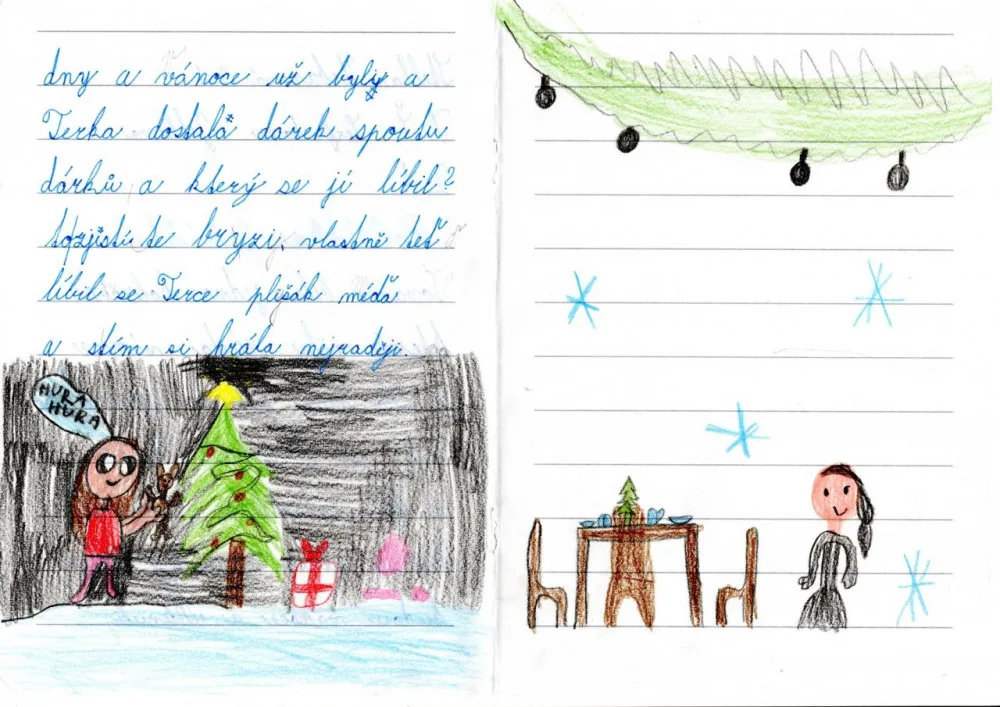 dny a vánoce už byly a
Terka dostala dárek spoutu
dárků a který se jí líbil?
to zjistíte bryzi, vlastně teď
líbil se Terce plišák méďa
a stím si hrála nejraději.
HURÁ
HURÁ